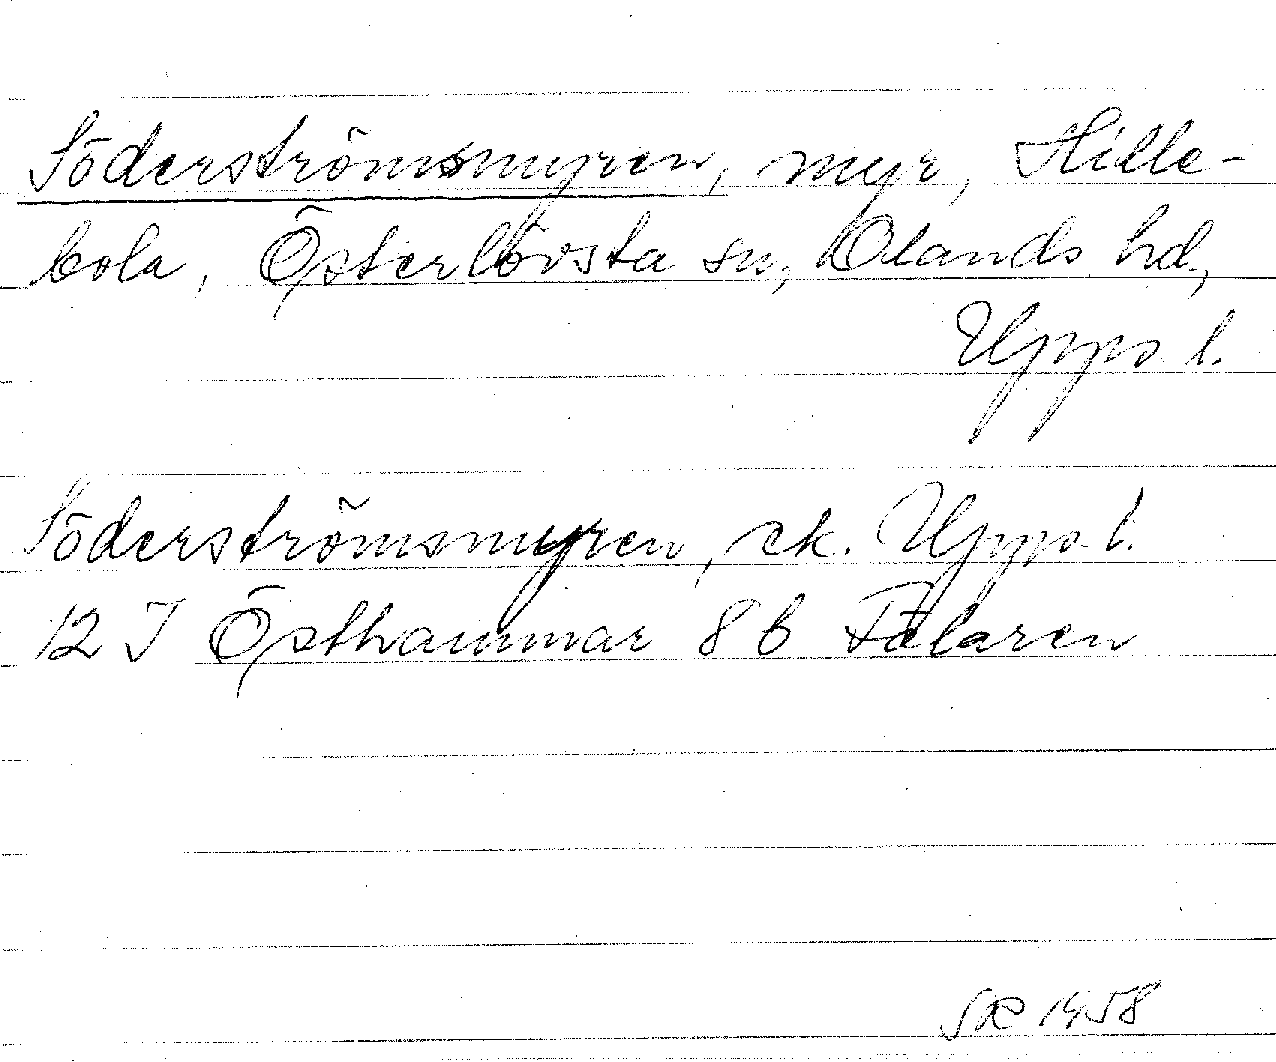 Söderströmsmyren, myr, Hille-
bola, Österlövsta sn, Olands hd,
Upps. l.
Söderströmsmyren, ek. Upps. l.
12 I Östhammar 8 b Fälaren
1958